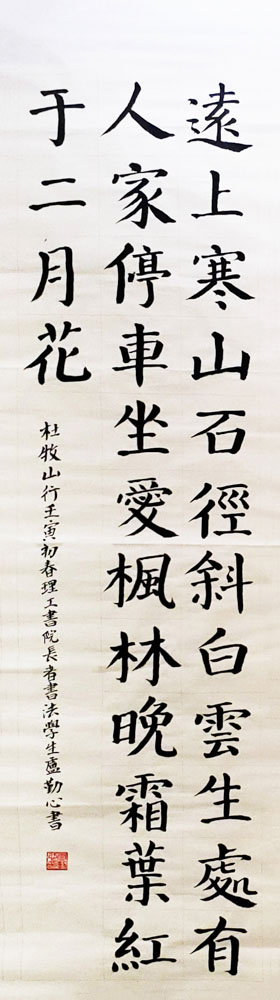 遠上寒山石徑斜白雲生處有
人家停車坐愛楓林晚霜葉紅
于二月花
杜牧山行壬寅初春理工書院長者書法學生盧勤心書